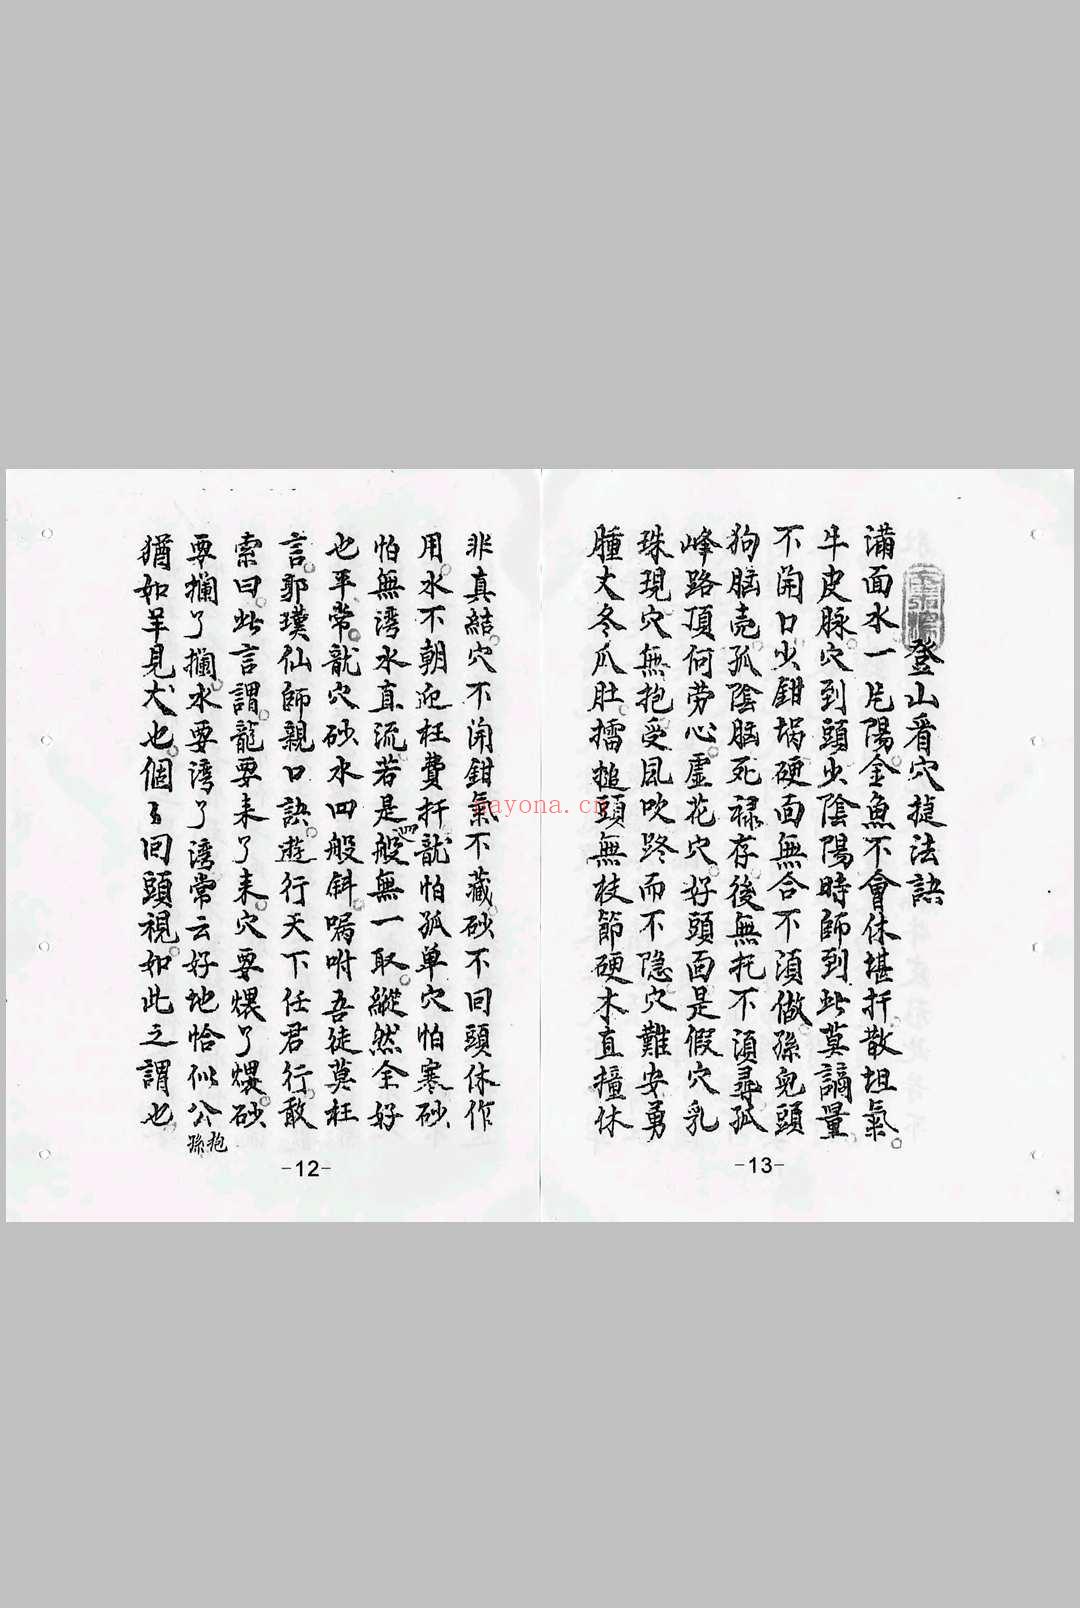 登山看穴捷法訣
滿面水一片陽金魚不會休堪扦散坦氣
牛皮脉穴到頭少陰陽時師到此莫謫量
不開口少鉗堝硬面無合不須做孫兒頭
狗腦壳孤陰腦死祿存後無托不須尋孤
峰路頂何劳心虛花穴好頭面是假穴乳
珠現穴無抱受風吹路而不隐穴難安勇
腫丈冬瓜肚擂搥頭無枝節硬木直撞休
-13-
非真結穴不開鉗氣不藏砂不回頭休作
用水不朝迎枉費扦龍怕孤单穴怕寒砂
怕無湾水直流若是四般無一取縱然全好
也平常龍穴砂水四般斜嘱咐吾徒莫枉
言郭璞仙師親口訣遊行天下任君行敢
索曰此言謂龍要来了来穴要煨了煨砂
要攔了攔水要湾了湾常云好地恰似公抱孫
猶如羊見犬也個々回頭視如此之謂也
-12-
nayona.cn